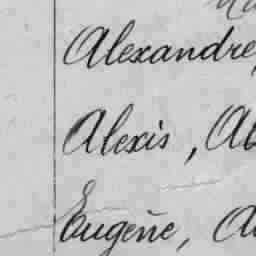 Alexandre,
Alexis, Al
Eugène, A